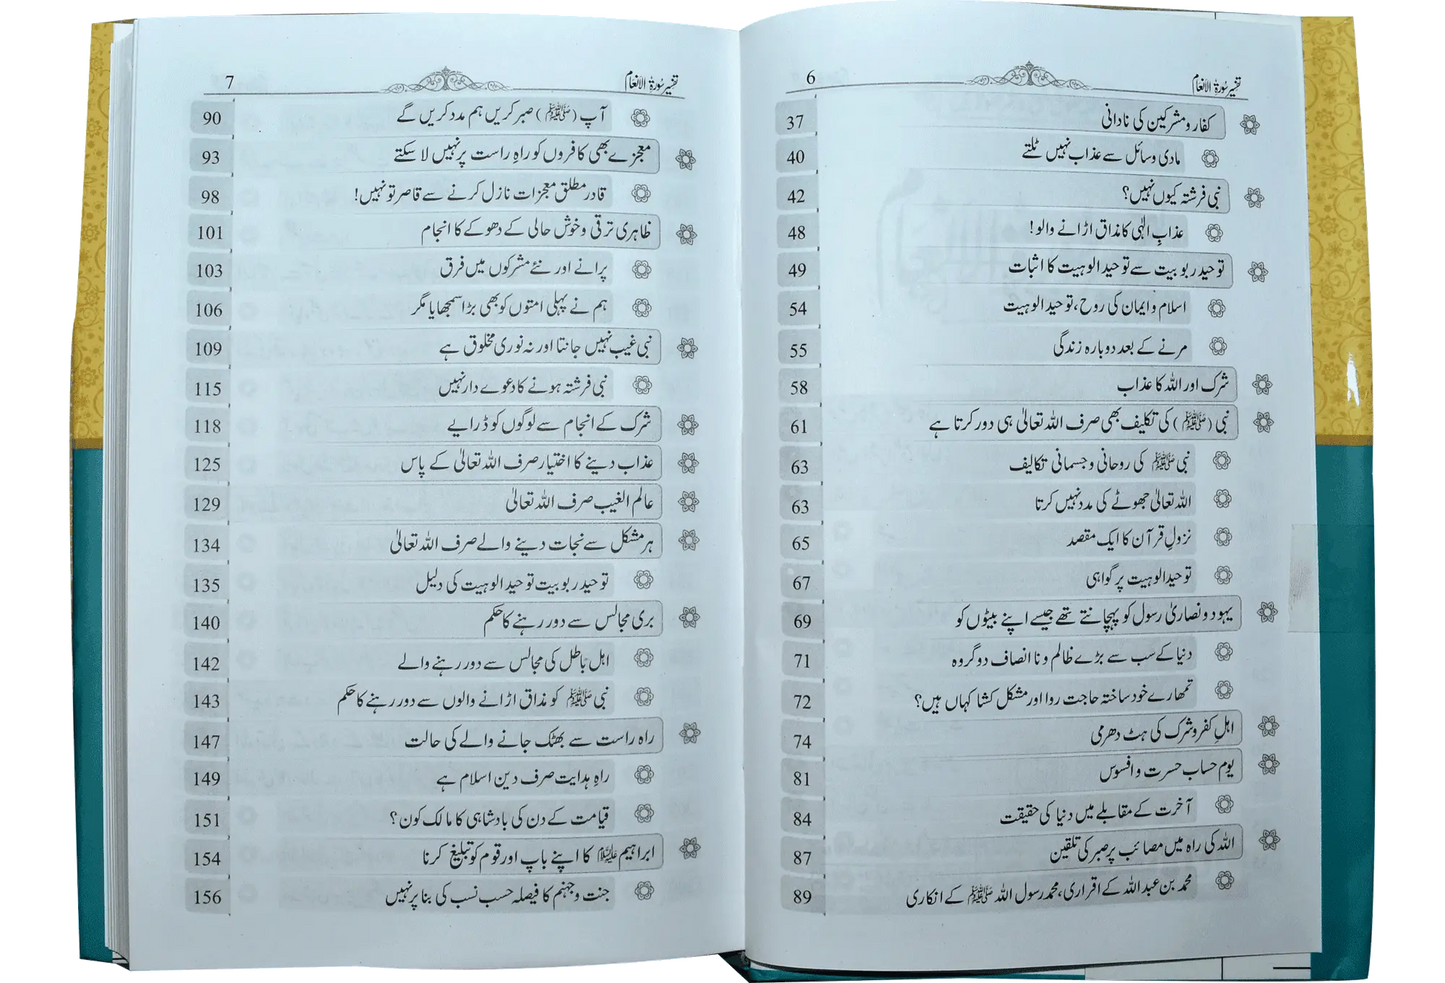 تفسیر سُورَۃ الانعام 6
کفار و مشرکین کی نادانی 37
مادی وسائل سے عذاب نہیں ٹلتے 40
نبی فرشتہ کیوں نہیں؟ 42
عذابِ الٰہی کا مذاق اڑانے والو! 48
توحید ربوبیت سے توحید الوہیت کا اثبات 49
اسلام و ایمان کی روح، توحید الوہیت 54
مرنے کے بعد دوبارہ زندگی 55
شرک اور اللہ کا عذاب 58
نبی (ﷺ) کی تکلیف بھی صرف اللہ تعالیٰ ہی دور کرتا ہے 61
نبی ﷺ کی روحانی و جسمانی تکالیف 63
اللہ تعالیٰ جھوٹے کی مدد نہیں کرتا 63
نزولِ قرآن کا ایک مقصد 65
توحید الوہیت پر گواہی 67
یہود و نصاریٰ رسول کو پہچانتے تھے جیسے اپنے بیٹوں کو 69
دنیا کے سب سے بڑے ظالم و نا انصاف دو گروہ 71
تمھارے خود ساختہ حاجت روا اور مشکل کشا کہاں ہیں؟ 72
اہلِ کفر و شرک کی ہٹ دھرمی 74
یوم حساب حسرت و افسوس 81
آخرت کے مقابلے میں دنیا کی حقیقت 84
اللہ کی راہ میں مصائب پر صبر کی تلقین 87
محمد بن عبداللہ کے اقراری، محمد رسول اللہ ﷺ کے انکاری 89
تفسیر سُورَۃ الانعام 7
آپ (ﷺ) صبر کریں ہم مدد کریں گے 90
معجزے بھی کافروں کو راہِ راست پر نہیں لا سکتے 93
قادر مطلق معجزات نازل کرنے سے قاصر تو نہیں! 98
ظاہری ترقی و خوش حالی کے دھوکے کا انجام 101
پرانے اور نئے مشرکوں میں فرق 103
ہم نے پہلی امتوں کو بھی بڑا سمجھایا مگر 106
نبی غیب نہیں جانتا اور نہ نوری مخلوق ہے 109
نبی فرشتہ ہونے کا دعوے دار نہیں 115
شرک کے انجام سے لوگوں کو ڈرایے 118
عذاب دینے کا اختیار صرف اللہ تعالیٰ کے پاس 125
عالم الغیب صرف اللہ تعالیٰ 129
ہر مشکل سے نجات دینے والے صرف اللہ تعالیٰ 134
توحید ربوبیت توحید الوہیت کی دلیل 135
بری مجالس سے دور رہنے کا حکم 140
اہل باطل کی مجالس سے دور رہنے والے 142
نبی ﷺ کو مذاق اڑانے والوں سے دور رہنے کا حکم 143
راہ راست سے بھٹک جانے والے کی حالت 147
راہِ ہدایت صرف دین اسلام ہے 149
قیامت کے دن کی بادشاہی کا مالک کون؟ 151
ابراہیم علیہ السلام کا اپنے باپ اور قوم کو تبلیغ کرنا 154
جنت و جہنم کا فیصلہ حسب نسب کی بنا پر نہیں 156